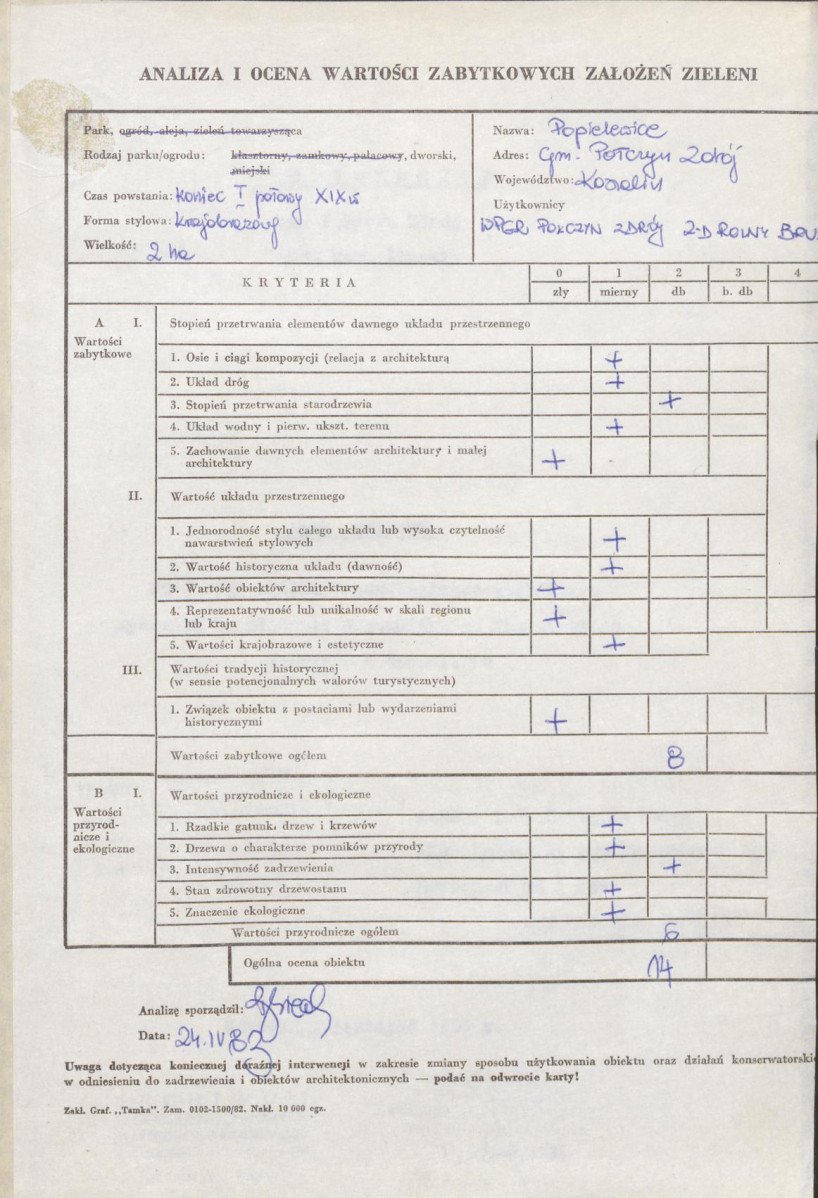 ANALIZA I OCENA WARTOŚCI ZABYTKOWYCH ZAŁOŻEŃ ZIELENI
Park, ogród, aleja, zieleń towarzysząca
Rodzaj parku/ogrodu: klasztorny, zamkowy, pałacowy, dworski,
miejski
Czas powstania: koniec I połowy XIX w
Forma stylowa: krajobrazowy
Wielkość: 2 ha
Nazwa: Popielewice
Adres: Gm. Połczyn Zdrój
Województwo: Koszalin
Użytkownicy
WPGR POŁCZYN ZDRÓJ Z-D ROLNY
KRYTERIA 0 1 2 3 4
zły mierny db b. db
A I. Stopień przetrwania elementów dawnego układu przestrzennego
Wartości
zabytkowe
1. Osie i ciągi kompozycji (relacja z architekturą +
2. Układ dróg +
3. Stopień przetrwania starodrzewia +
4. Układ wodny i pierw. ukszt. terenu +
5. Zachowanie dawnych elementów architektury i małej
architektury +
II. Wartość układu przestrzennego
1. Jednorodność stylu całego układu lub wysoka czytelność
nawarstwień stylowych +
2. Wartość historyczna układu (dawność) +
3. Wartość obiektów architektury +
4. Reprezentatywność lub unikalność w skali regionu
lub kraju +
5. Wartości krajobrazowe i estetyczne +
III. Wartości tradycji historycznej
(w sensie potencjonalnych walorów turystycznych)
1. Związek obiektu z postaciami lub wydarzeniami
historycznymi +
Wartości zabytkowe ogółem 8
B I. Wartości przyrodnicze i ekologiczne
Wartości
przyrod-
nicze i
ekologiczne
1. Rzadkie gatunki drzew i krzewów +
2. Drzewa o charakterze pomników przyrody +
3. Intensywność zadrzewienia +
4. Stan zdrowotny drzewostanu +
5. Znaczenie ekologiczne +
Wartości przyrodnicze ogółem 6
Ogólna ocena obiektu 14
Analizę sporządził:
Data: 24.IV 82
Uwaga dotycząca koniecznej doraźnej interwencji w zakresie zmiany sposobu użytkowania obiektu oraz działań konserwatorski
w odniesieniu do zadrzewienia i obiektów architektonicznych — podać na odwrocie karty!
Zakł. Graf. „Tamka". Zam. 0102-1500/82. Nakł. 10 000 egz.